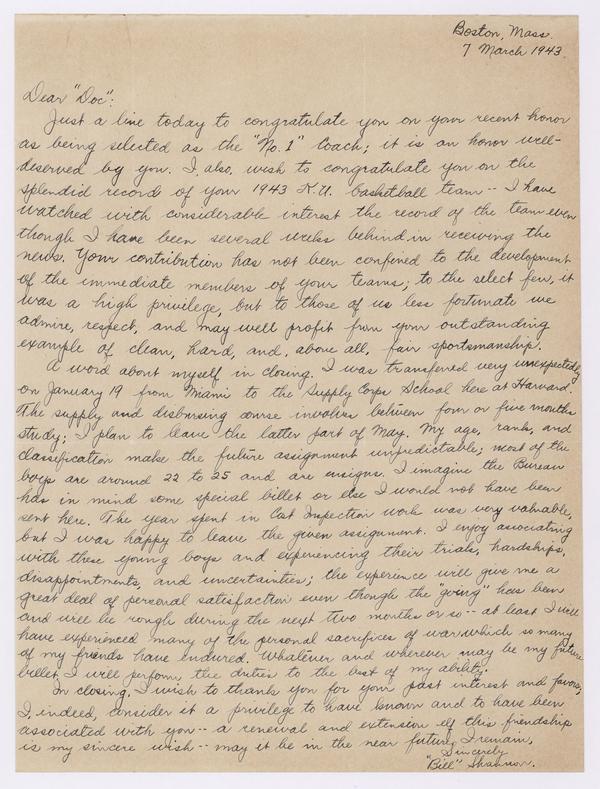 Boston, Mass.
7 March 1943.
Dear "Doc":
Just a line today to congratulate you on your recent honor
as being selected as the "No. 1" Coach; it is an honor well-
deserved by you. I, also, wish to congratulate you on the
splendid record of your 1943 K.U. basketball team -- I have
watched with considerable interest the record of the team even
though I have been several weeks behind in receiving the
news. Your contribution has not been confined to the development
of the immediate members of your teams; to the select few, it
was a high privilege, but to those of us less fortunate we
admire, respect, and may well profit from your outstanding
example of clean, hard, and, above all, fair sportsmanship.
A word about myself in closing. I was transferred very unexpectedly
on January 19 from Miami to the Supply Corps School here at Harvard.
The supply and disbursing course involves between four or five months
study; I plan to leave the latter part of May. My age, rank, and
classification make the future assignment unpredictable; most of the
boys are around 22 to 25 and are ensigns. I imagine the Bureau
has in mind some special billet or else I would not have been
sent here. The year spent in Cost Inspection work was very valuable,
but I was happy to leave the given assignment. I enjoy associating
with these young boys and experiencing their trials, hardships,
disappointments, and uncertainties; the experience will give me a
great deal of personal satisfaction even though the "going" has been
and will be rough during the next two months or so -- at least I will
have experienced many of the personal sacrifices of war which so many
of my friends have endured. Whatever and wherever may be my future
billet I will perform the duties to the best of my ability.
In closing, I wish to thank you for your past interest and favors;
I, indeed, consider it a privilege to have known and to have been
associated with you -- a renewal and extension of this friendship
is my sincere wish -- may it be in the near future, I remain,
Sincerely
"Bill" Shannon.